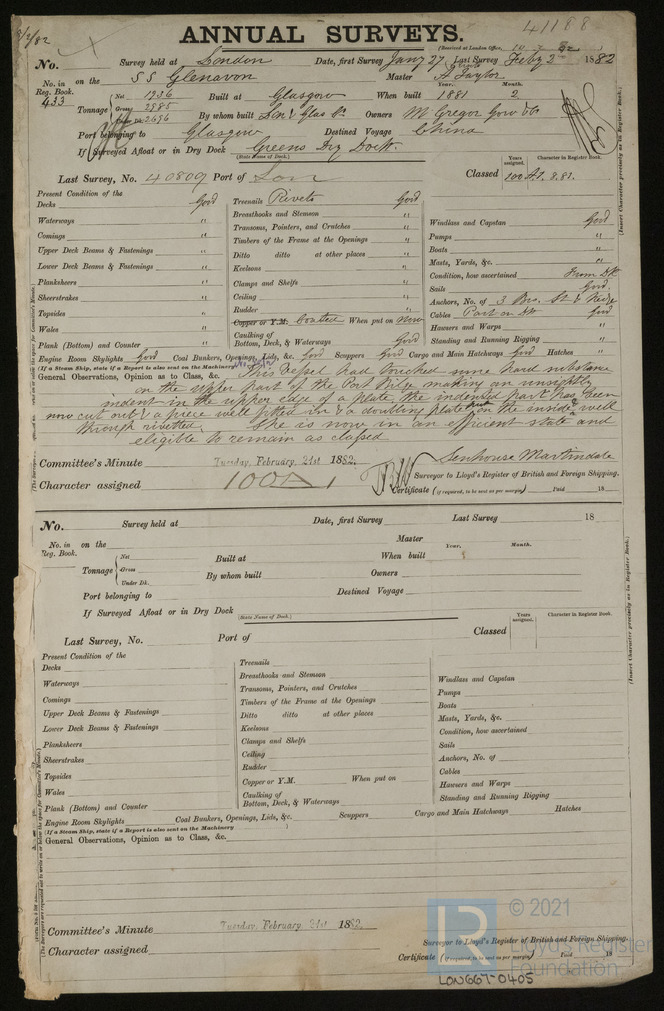 ANNUAL SURVEYS.
41188
3/2/82
(Received at London Office,
No. Survey held at London Date, first Survey Jany 27 Last Survey Feby 2 1882
No. in Reg. Book. 433 on the SS Glenavon Master A Taylor
Year. Month.
Tonnage Net 1936 Built at Glasgow When built 1881 2
Gross 2985
Under Dk. 2696 By whom built Lon & Glas Co. Owners McGregor Gow & Co
Port belonging to Glasgow Destined Voyage China
If Surveyed Afloat or in Dry Dock Greens Dry Dock.
(State Name of Dock.)
Years assigned. Character in Register Book.
Last Survey, No. 40809 Port of Lon Classed 100 A1. 8.81.
(Insert Character precisely as in Register Book.)
Present Condition of the
Decks Good
Waterways "
Comings "
Upper Deck Beams & Fastenings "
Lower Deck Beams & Fastenings "
Planksheers "
Sheerstrakes "
Topsides "
Wales "
Plank (Bottom) and Counter "
Treenails Rivets Good
Breasthooks and Stemson "
Transoms, Pointers, and Crutches "
Timbers of the Frame at the Openings "
Ditto ditto at other places "
Keelsons "
Clamps and Shelfs "
Ceiling "
Rudder "
Copper or Y.M. Coated When put on Now
Caulking of Bottom, Deck, & Waterways Good
Windlass and Capstan Good
Pumps "
Boats "
Masts, Yards, &c. "
Condition, how ascertained From Dk
Sails Good.
Anchors, No. of 3 Bro. St. & Kedge
Cables Part on Dk Good
Hawsers and Warps "
Standing and Running Rigging "
Engine Room Skylights Good Coal Bunkers, Openings, Lids, &c. Good Scuppers Good Cargo and Main Hatchways Good Hatches "
(If a Steam Ship, state if a Report is also sent on the Machinery
General Observations, Opinion as to Class, &c. This Vessel had touched some hard substance
on the upper part of the Port Bilge making an unsightly
indent in the upper edge of a plate, the indented part has been
now cut out & a piece well fitted in & a doubling plate on the inside well
through rivetted. She is now in an efficient state and
eligible to remain as classed
Senhouse Martindale
Committee's Minute Tuesday, February, 21st 1882.
Surveyor to Lloyd's Register of British and Foreign Shipping.
Character assigned 100A1
Certificate (if required, to be sent as per margin) Paid 18
No. Survey held at Date, first Survey Last Survey 18
No. in Reg. Book. on the Master
Year. Month.
Tonnage Net Built at When built
Gross
Under Dk. By whom built Owners
Port belonging to Destined Voyage
If Surveyed Afloat or in Dry Dock
(State Name of Dock.)
Years assigned. Character in Register Book.
Last Survey, No. Port of Classed
(Insert Character precisely as in Register Book.)
Present Condition of the
Decks
Waterways
Comings
Upper Deck Beams & Fastenings
Lower Deck Beams & Fastenings
Planksheers
Sheerstrakes
Topsides
Wales
Plank (Bottom) and Counter
Treenails
Breasthooks and Stemson
Transoms, Pointers, and Crutches
Timbers of the Frame at the Openings
Ditto ditto at other places
Keelsons
Clamps and Shelfs
Ceiling
Rudder
Copper or Y.M. When put on
Caulking of Bottom, Deck, & Waterways
Windlass and Capstan
Pumps
Boats
Masts, Yards, &c.
Condition, how ascertained
Sails
Anchors, No. of
Cables
Hawsers and Warps
Standing and Running Rigging
Engine Room Skylights Coal Bunkers, Openings, Lids, &c. Scuppers Cargo and Main Hatchways Hatches
(If a Steam Ship, state if a Report is also sent on the Machinery )
General Observations, Opinion as to Class, &c.
Committee's Minute Tuesday, February, 21st 1882.
Surveyor to Lloyd's Register of British and Foreign Shipping.
Character assigned
Certificate (if required, to be sent as per margin) Paid 18
LR © 2021
Lloyd's Register
Foundation
LON667-0405